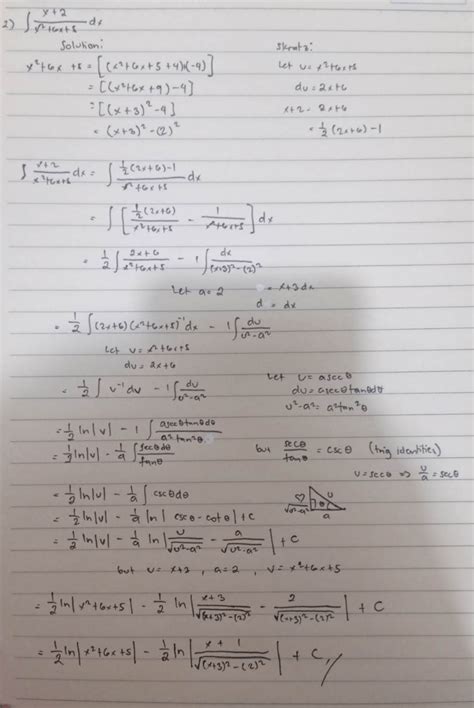 2) ∫ x+2 / x²+6x+5 dx
Solution:
x²+6x+5 = [(x²+6x+5+4)+(-4)]
= [(x²+6x+9)-4]
= [(x+3)²-4]
= (x+3)²-(2)²
let v = x²+6x+5
du = 2x+6
x+2 2x+6
= ½(2x+6)-1
∫ x+2 / x²+6x+5 dx = ∫ ½(2x+6)-1 / x²+6x+5 dx
= ∫ [ ½(2x+6) / x²+6x+5 - 1 / x²+6x+5 ] dx
= ½ ∫ 2x+6 / x²+6x+5 - 1 ∫ dx / (x+3)²-(2)²
Let a = 2 = x+3 dx
d = dx
= ½ ∫ (2x+6)(x²+6x+5)⁻¹ dx - 1 ∫ du / u²-a²
let v = x²+6x+5
du = 2x+6
= ½ ∫ v⁻¹ dv - 1 ∫ du / u²-a²
let u = a sec θ
du = a sec θ tan θ dθ
u²-a² = a² tan² θ
= ½ ln|v| - 1 ∫ a sec θ tan θ dθ / a² tan² θ
= ½ ln|v| - 1/a ∫ sec θ dθ / tan θ
but sec θ / tan θ = csc θ (trig identities)
u = sec θ ⇒ u/a = sec θ
= ½ ln|v| - 1/a ∫ csc θ dθ
= ½ ln|v| - 1/a ln | csc θ - cot θ | + C
√u²-a² u θ a
= ½ ln|v| - 1/a ln | u / √u²-a² - a / √u²-a² | + C
but u = x+3 , a = 2 , v = x²+6x+5
= ½ ln| x²+6x+5 | - ½ ln | x+3 / √(x+3)²-(2)² - 2 / √(x+3)²-(2)² | + C
= ½ ln| x²+6x+5 | - ½ ln | x + 1 / √(x+3)²-(2)² | + C //